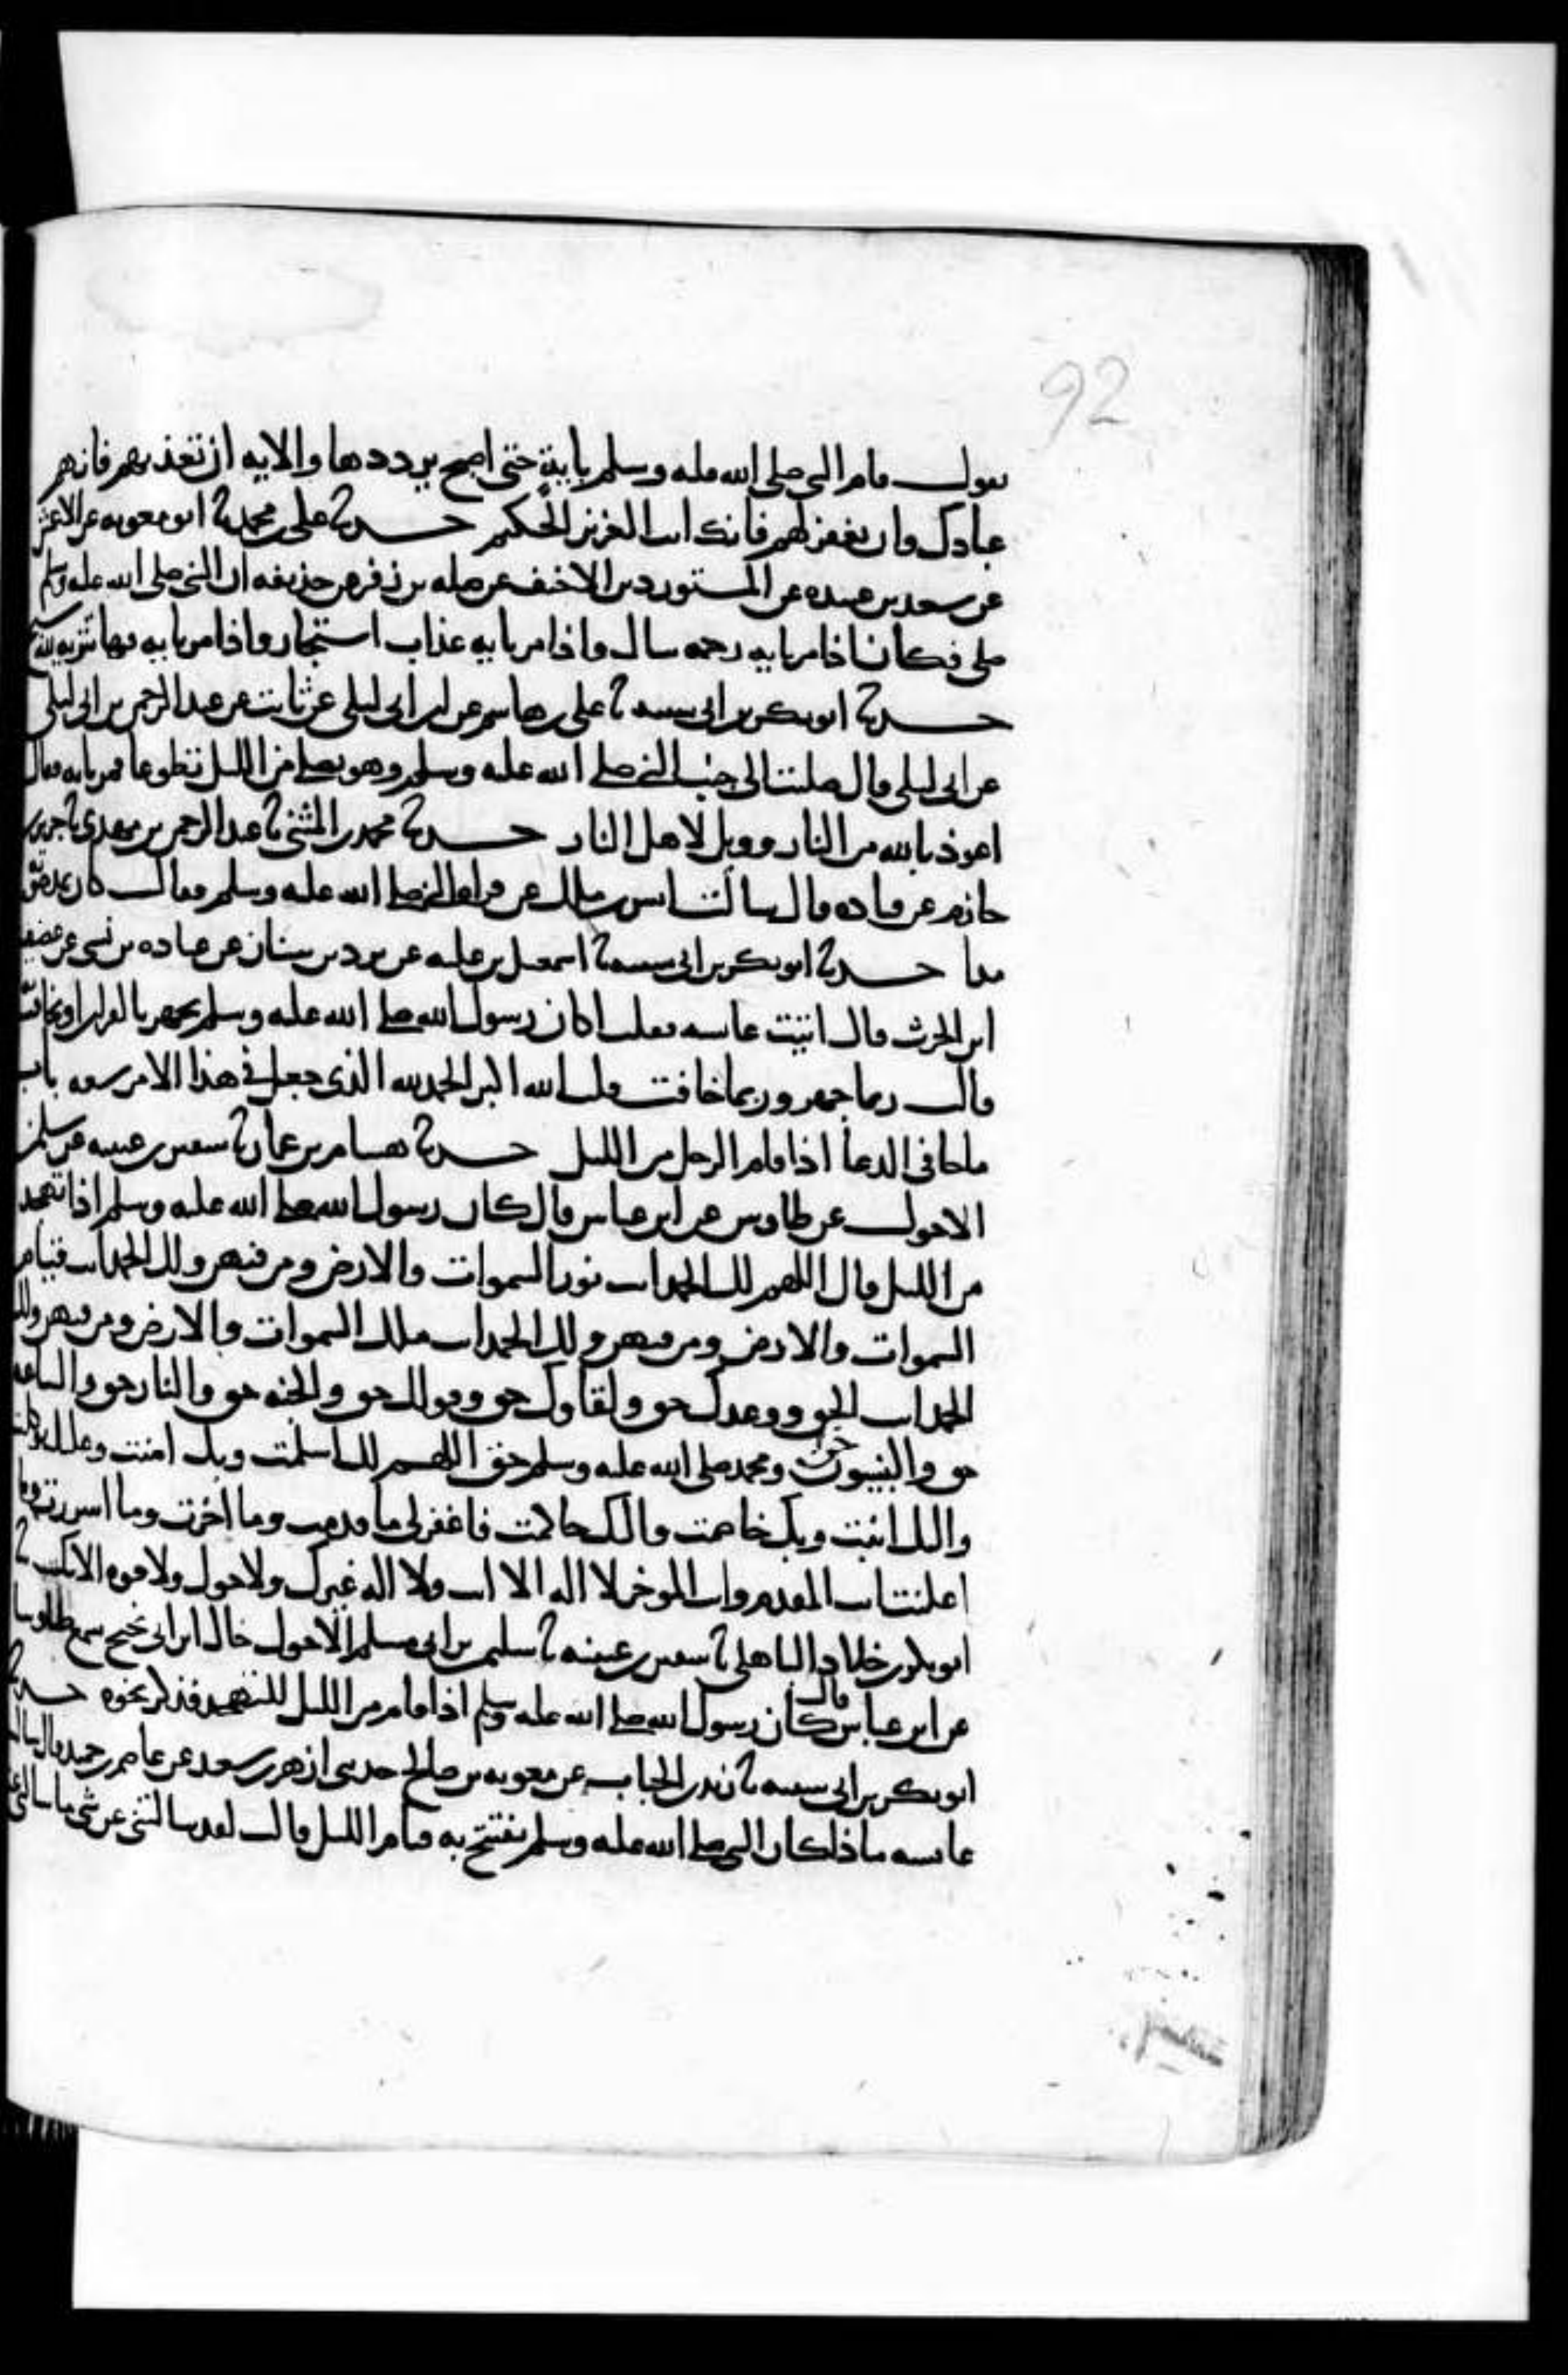 92
يقول قام النبي صلى الله عليه وسلم بايةٍ حتى اصبح يرددها والاية ان تعذبهم فانهم
عبادك وان تغفر لهم فانك انت العزيز الحكيم حدثنا على بن محمد ثنا ابو معوية عن الاعمش
عن سعد بن عبيدة عن المستورد بن الاحنف عن صله بن زفر عن حذيفه ان النبي صلى الله عليه وسلم
صلى فكان اذا مر باية رحمة سال واذا مر باية عذاب استجار واذا مر باية فيها تنزيه لله سبح
حدثنا ابو بكر بن ابي شيبه ثنا على بن هاشم عن ابن ابي ليلى عن ثابت عن عبد الرحمن بن ابي ليلى
عن ابي ليلى قال صليت الى جنب النبي صلى الله عليه وسلم وهو يصلي من الليل تطوعا فمر باية فقال
اعوذ بالله من النار وويل لاهل النار حدثنا محمد بن المثنى ثنا عبد الرحمن بن مهدي ثنا جرير بن
حازم عن قتادة قال سالت انس بن ملك عن قراة النبي صلى الله عليه وسلم فقال كان يمد صوته
مدا حدثنا ابو بكر بن ابي شيبه ثنا اسمعيل بن علية عن برد بن سنان عن عبادة بن نسي عن غضيف
ابن الحرث قال اتيت عايشه فقلت اكان رسول الله صلى الله عليه وسلم يجهر بالقران او يخافت
قالت ربما جهر وربما خافت قلت الله اكبر الحمد لله الذي جعل في هذا الامر سعه باب
ما جا في الدعا اذا قام الرجل من الليل حدثنا هشام بن عمار ثنا سفين بن عيينه عن سليمن
الاحول عن طاوس عن ابن عباس قال كان رسول الله صلى الله عليه وسلم اذا تهجد
من الليل قال اللهم لك الحمد انت نور السموات والارض ومن فيهن ولك الحمد انت قيام
السموات والارض ومن فيهن ولك الحمد انت ملك السموات والارض ومن فيهن ولك
الحمد انت الحق ووعدك حق ولقاوك حق وقولك حق والجنه حق والنار حق والساعة
حق والنبيون حق ومحمد صلى الله عليه وسلم حق اللهم لك اسلمت وبك امنت وعليك توكلت
واليك انبت وبك خاصمت واليك حاكمت فاغفر لي ما قدمت وما اخرت وما اسررت وما
اعلنت انت المقدم وانت الموخر لا اله الا انت ولا اله غيرك ولا حول ولا قوة الا بك ثنا
ابو بكر بن خلاد الباهلي ثنا سفين بن عيينه ثنا سليمن بن ابي مسلم الاحول خال ابن ابي نجيح سمع طاوسا
عن ابن عباس قال كان رسول الله صلى الله عليه وسلم اذا قام من الليل للتهجد فذكر نحوه حدثنا
ابو بكر بن ابي شيبه ثنا زيد بن الحباب عن معوية بن صالح حدثني ازهر بن سعد عن عاصم بن حميد قال سالت
عايشه ماذا كان النبي صلى الله عليه وسلم يفتتح به قيام الليل قالت لقد سالتني عن شي ما سالني